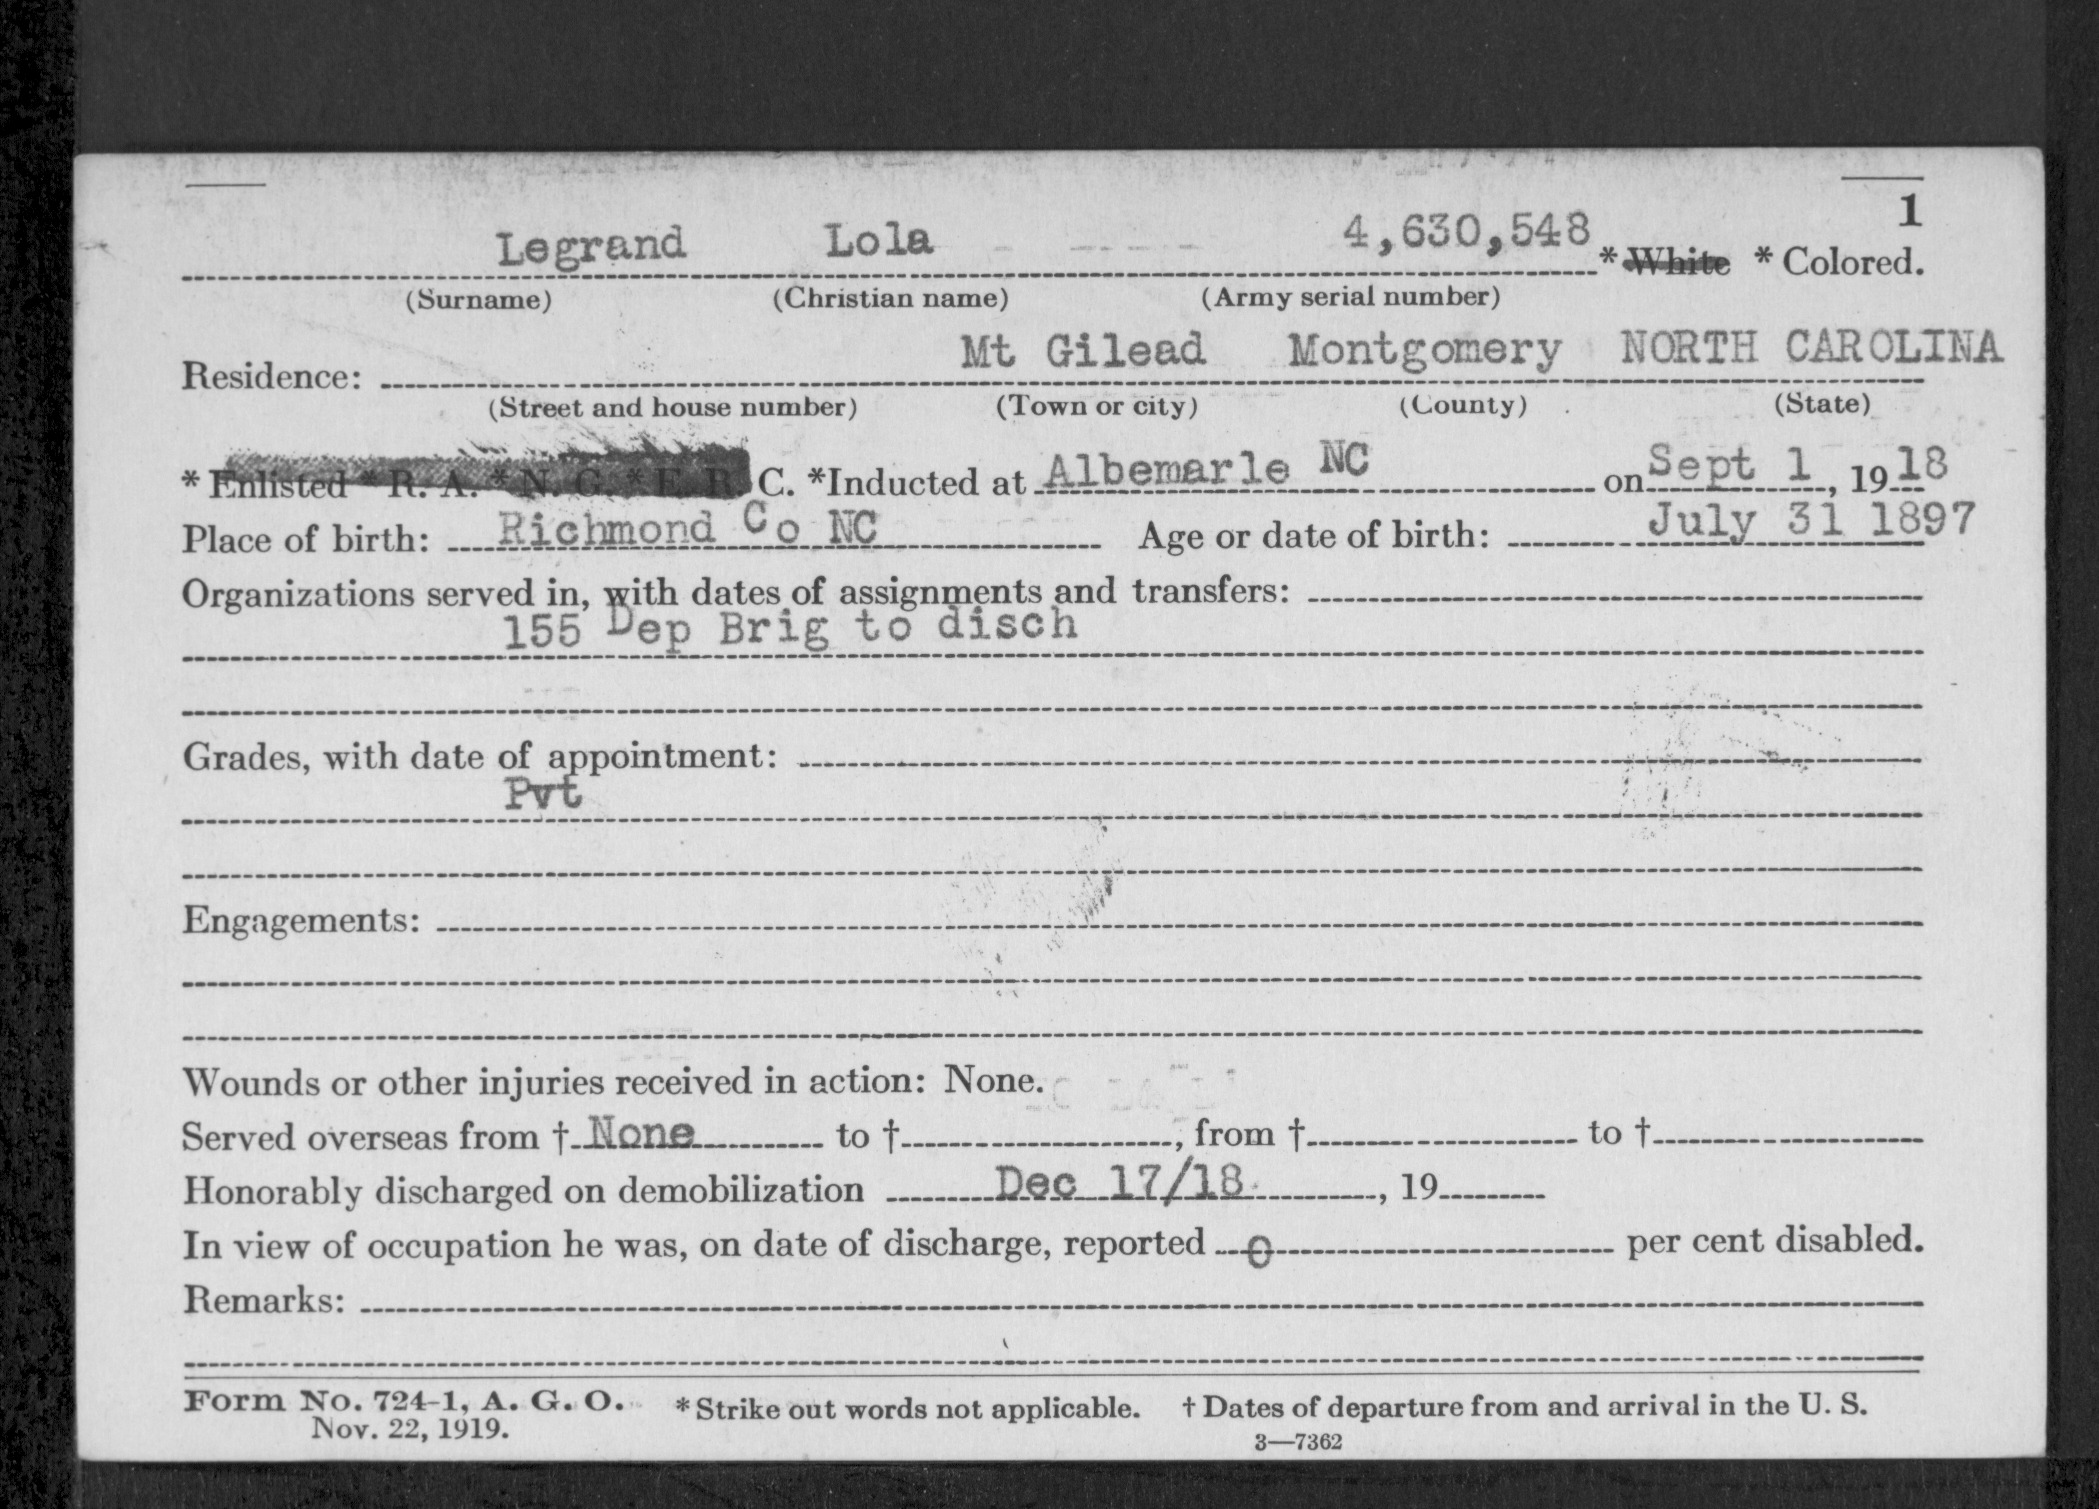 1
Legrand Lola 4,630,548 * White * Colored.
(Surname) (Christian name) (Army serial number)
Residence: Mt Gilead Montgomery NORTH CAROLINA
(Street and house number) (Town or city) (County) (State)
* Enlisted * R. A. * N. G. * E. R. C. *Inducted at Albemarle NC on Sept 1, 1918
Place of birth: Richmond Co NC Age or date of birth: July 31 1897
Organizations served in, with dates of assignments and transfers:
155 Dep Brig to disch
Grades, with date of appointment:
Pvt
Engagements:
Wounds or other injuries received in action: None.
Served overseas from † None to †, from † to †
Honorably discharged on demobilization Dec 17/18, 19
In view of occupation he was, on date of discharge, reported 0 per cent disabled.
Remarks:
Form No. 724-1, A. G. O. * Strike out words not applicable. † Dates of departure from and arrival in the U. S.
Nov. 22, 1919.
3—7362